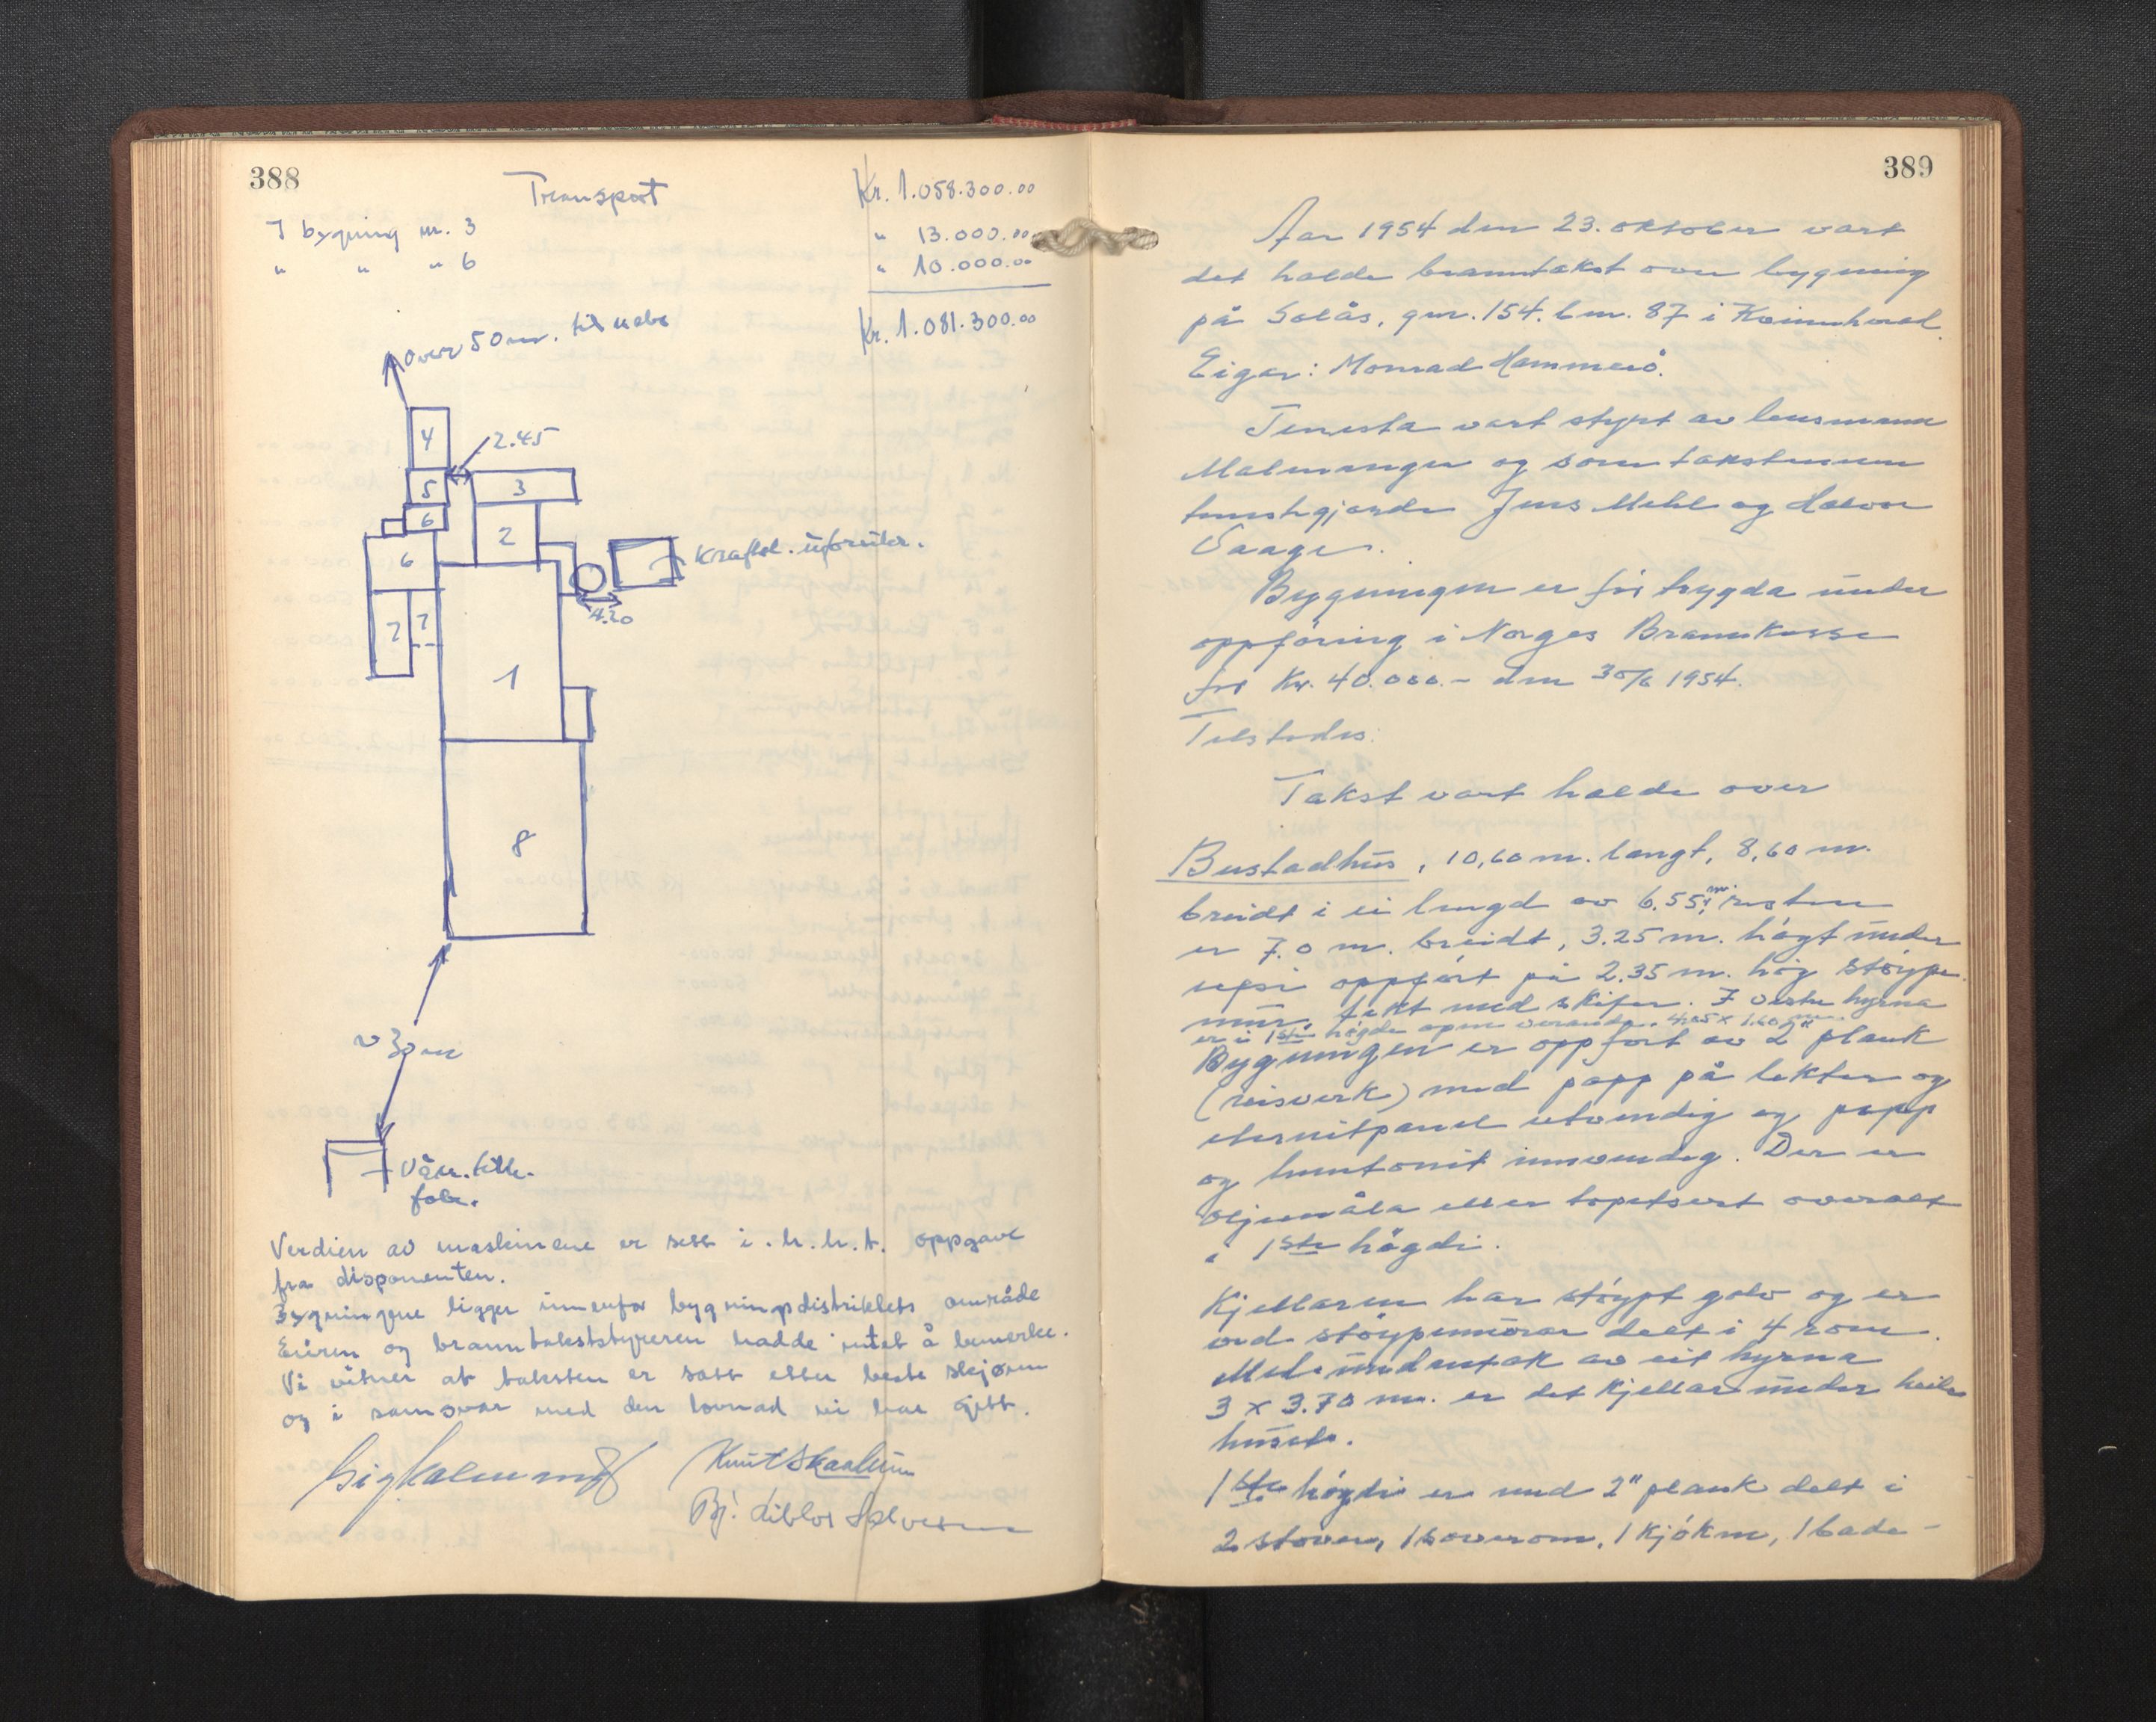 388
Transport Kr. 1.058.300.00
I bygning nr. 3 " 13.000.00
" " " 6 " 10.000.00
Kr. 1.081.300.00
Over 50 m. til nabo
4
2.45
5
3
6
2
6
Kraftst.
4.20
7 7
1
8
~ 30 m
Verdien av maskinene er sett i.h.h.t. oppgave
fra disponenten.
Bygningene ligger innenfor bygningsdistriktets område
Eieren og branntakststyreren hadde intet å bemerke.
Vi vitner at taksten er satt etter beste skjønn
og i samsvar med den lovnad vi har gitt.
Knut Skaaluren
389
Aar 1954 den 23. oktober vart
det halde branntakst over bygning
på Solås, gnr. 154. bnr. 87 i Kvinnherad.
Eigar: Monrad Hammerö.
Tenesta vart styrt av lensmann
Malmanger og som takstmenn
tenestgjorde Jens Mehl og Halvor
Vaage.
Bygningen er fyr trygda under
oppföring i Norges Brannkasse
for Kr. 40.000.- den 30/6 1954.
Tilstades:
Takst vart halde over
Bustadhus, 10,60 m. langt, 8,60 m.
breidt i ei lengd av 6.55 m, resten
er 7.0 m. breidt, 3.25 m. högt under
ufsi oppfört på 2.35 m. hög stöype
mur. Tekt med skifer. I vestre hyrna
er i 1ste högde open veranda. 4.05 x 1.60 m
Bygningen er oppfört av 2" plank
(reisverk) med papp på lekter og
eternitpanel utvendig og papp
og huntonit innvendig. Der er
oljemåla eller tapetsert overalt
i 1ste högdi.
Kjellaren har stöypt golv og er
ved stöypemurar delt i 4 rom.
Med undantak av eit hyrna
3 x 3.70 m. er det kjellar under heile
huset.
1ste högdi er med 2" plank delt i
2 stover, 1 soverom, 1 kjöken, 1 bade-